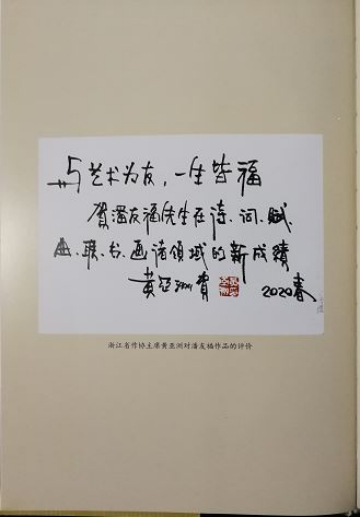 与艺术为友，一生皆福
贺潘友福先生在诗、词、赋
曲、联、书、画诸领域的新成绩
黄亚洲贺
2020春
浙江省作协主席黄亚洲对潘友福作品的评价